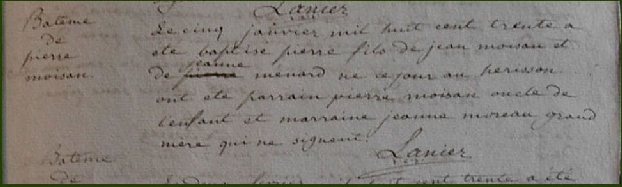 Lanier
Bateme
de
pierre
moison.
Le cinq janvier mil huit cent trente a
ete baptisé pierre fils de jean moison et
de jeanne ménard né ce jour au perisson.
ont eté parrain pierre moison oncle de
l'enfant et marraine jeanne moreau grand
mere qui ne signent.
Lanier
Bateme
de
cent trente a été